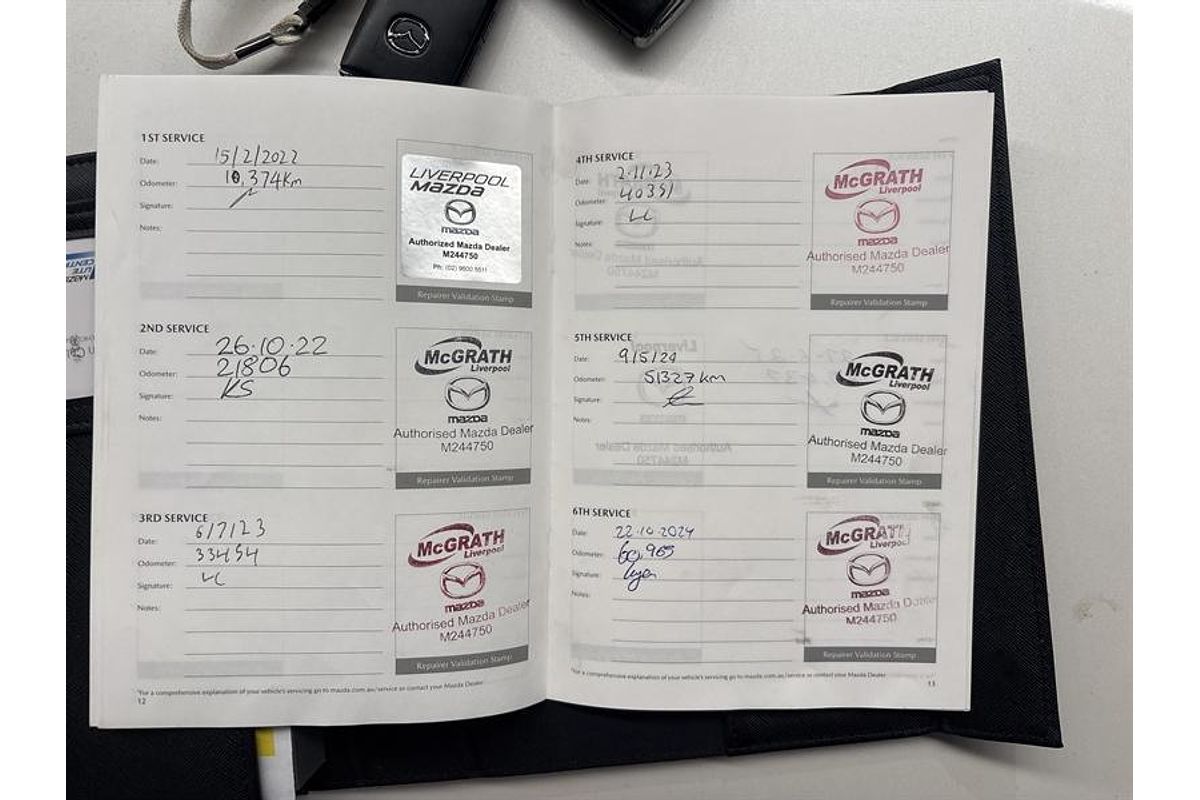 1ST SERVICE
Date: 15/2/2022
Odometer: 10,374Km
Signature:
Notes:
LIVERPOOL
mazda
mazda
Authorized Mazda Dealer
M244750
Ph: (02) 9600 5511
Repairer Validation Stamp
2ND SERVICE
Date: 26.10.22
Odometer: 21806
Signature: KS
Notes:
McGRATH
Liverpool
mazda
Authorised Mazda Dealer
M244750
Repairer Validation Stamp
3RD SERVICE
Date: 6/7/23
Odometer: 33454
Signature: LC
Notes:
McGRATH
Liverpool
mazda
Authorised Mazda Dealer
M244750
Repairer Validation Stamp
*For a comprehensive explanation of your vehicle's servicing go to mazda.com.au/service or contact your Mazda Dealer
12
4TH SERVICE
Date: 2.11.23
Odometer: 40351
Signature: LC
Notes:
McGRATH
Liverpool
mazda
Authorised Mazda Dealer
M244750
Repairer Validation Stamp
5TH SERVICE
Date: 9/5/24
Odometer: 51327km
Signature:
Notes:
McGRATH
Liverpool
mazda
Authorised Mazda Dealer
M244750
Repairer Validation Stamp
6TH SERVICE
Date: 22.10.2024
Odometer: 60,965
Signature:
Notes:
McGRATH
Liverpool
mazda
Authorised Mazda Dealer
M244750
Repairer Validation Stamp
*For a comprehensive explanation of your vehicle's servicing go to mazda.com.au/service or contact your Mazda Dealer
13